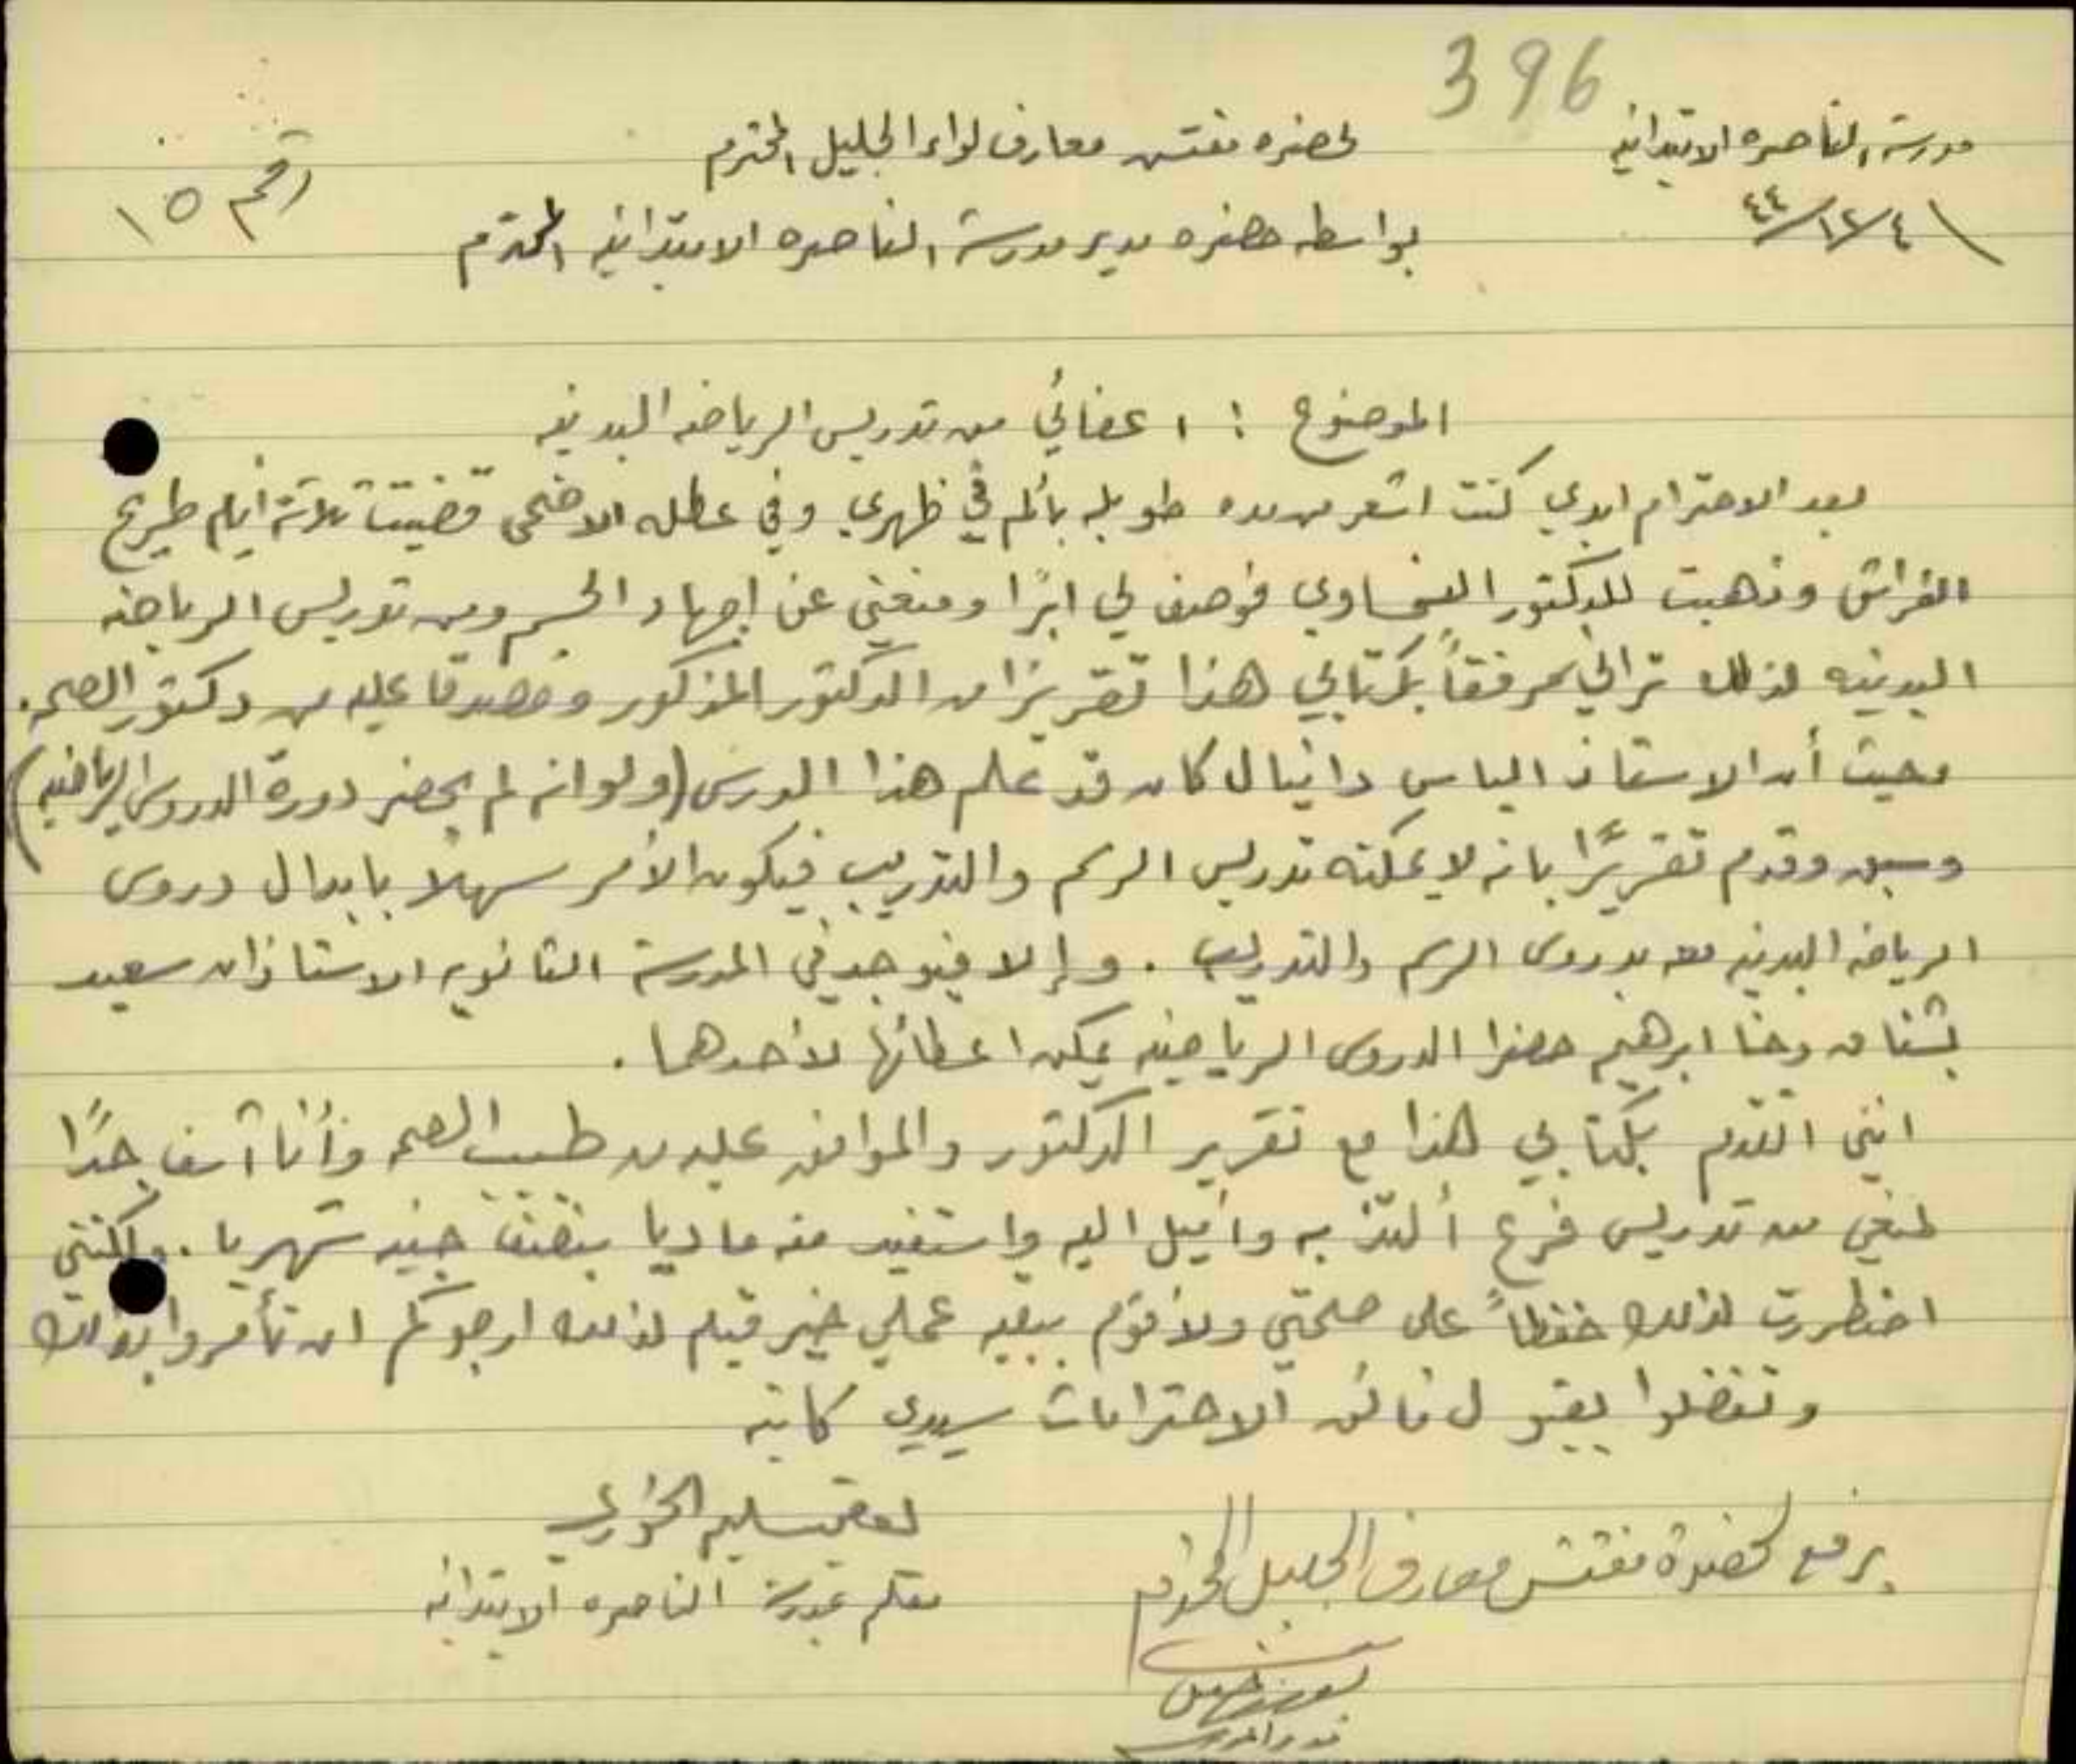 396
مدرسة الناصره الابتدائيه
٤٤/١٢/٤
لحضرة مفتش معارف لواء الجليل المحترم
رقم ١٥
بواسطه حضره مدير مدرسة الناصره الابتدائيه المحترم
الموضوع : اعفائي من تدريس الرياضه البدنيه
بعد الاحترام ابدي كنت اشعر من مده طويله بألم في ظهري وفي عطله الاضحى قضيت ثلاثة أيام طريح
الفراش وذهبت للدكتور النحاوي فوصف لي ابرًا ومنعني عن إجهاد الجسم ومن تدريس الرياضه
البدنيه لذلك تراني مرفقاً بكتابي هذا تقريرًا من الدكتور المذكور ومصدقا عليه من دكتور الصحه.
وحيث أن الاستاذ الياس دانيال كان قد علم هذا الدرس (ولو انه لم يحضر دورة الدروس الرياضيه)
وسبق وقدم تقريرًا بانه لا يمكنه تدريس الرسم والتدريب فيكون الأمر سهلًا بابدال دروس
الرياضه البدنيه معه بدروس الرسم والتدريب . وإلا فيوجد في المدرسة الثانويه الاستاذان سعيد
بشناق وحنا ابرهيم حضرا الدروس الرياضيه يمكن اعطائها لأحدهما .
انني اتقدم بكتابي هذا مع تقرير الدكتور والموافق عليه من طبيب الصحه وأنا آسف جدًا
لمنعي من تدريس فرع ألتذ به وأميل اليه واستفيد منه ماديا بنصف جنيه شهريا . ولكنني
اضطررت لذلك حفظاً على صحتي ولأقوم ببقيه عملي خير قيام لذلك ارجوكم ان تأمروا بذلك
وتفضلوا بقبول فائق الاحترامات سيدي كاتبه
سليم الخوري
معلم بمدرسة الناصره الابتدائيه
يرفع لحضرة مفتش معارف الجليل المحترم
مدير المدرسة